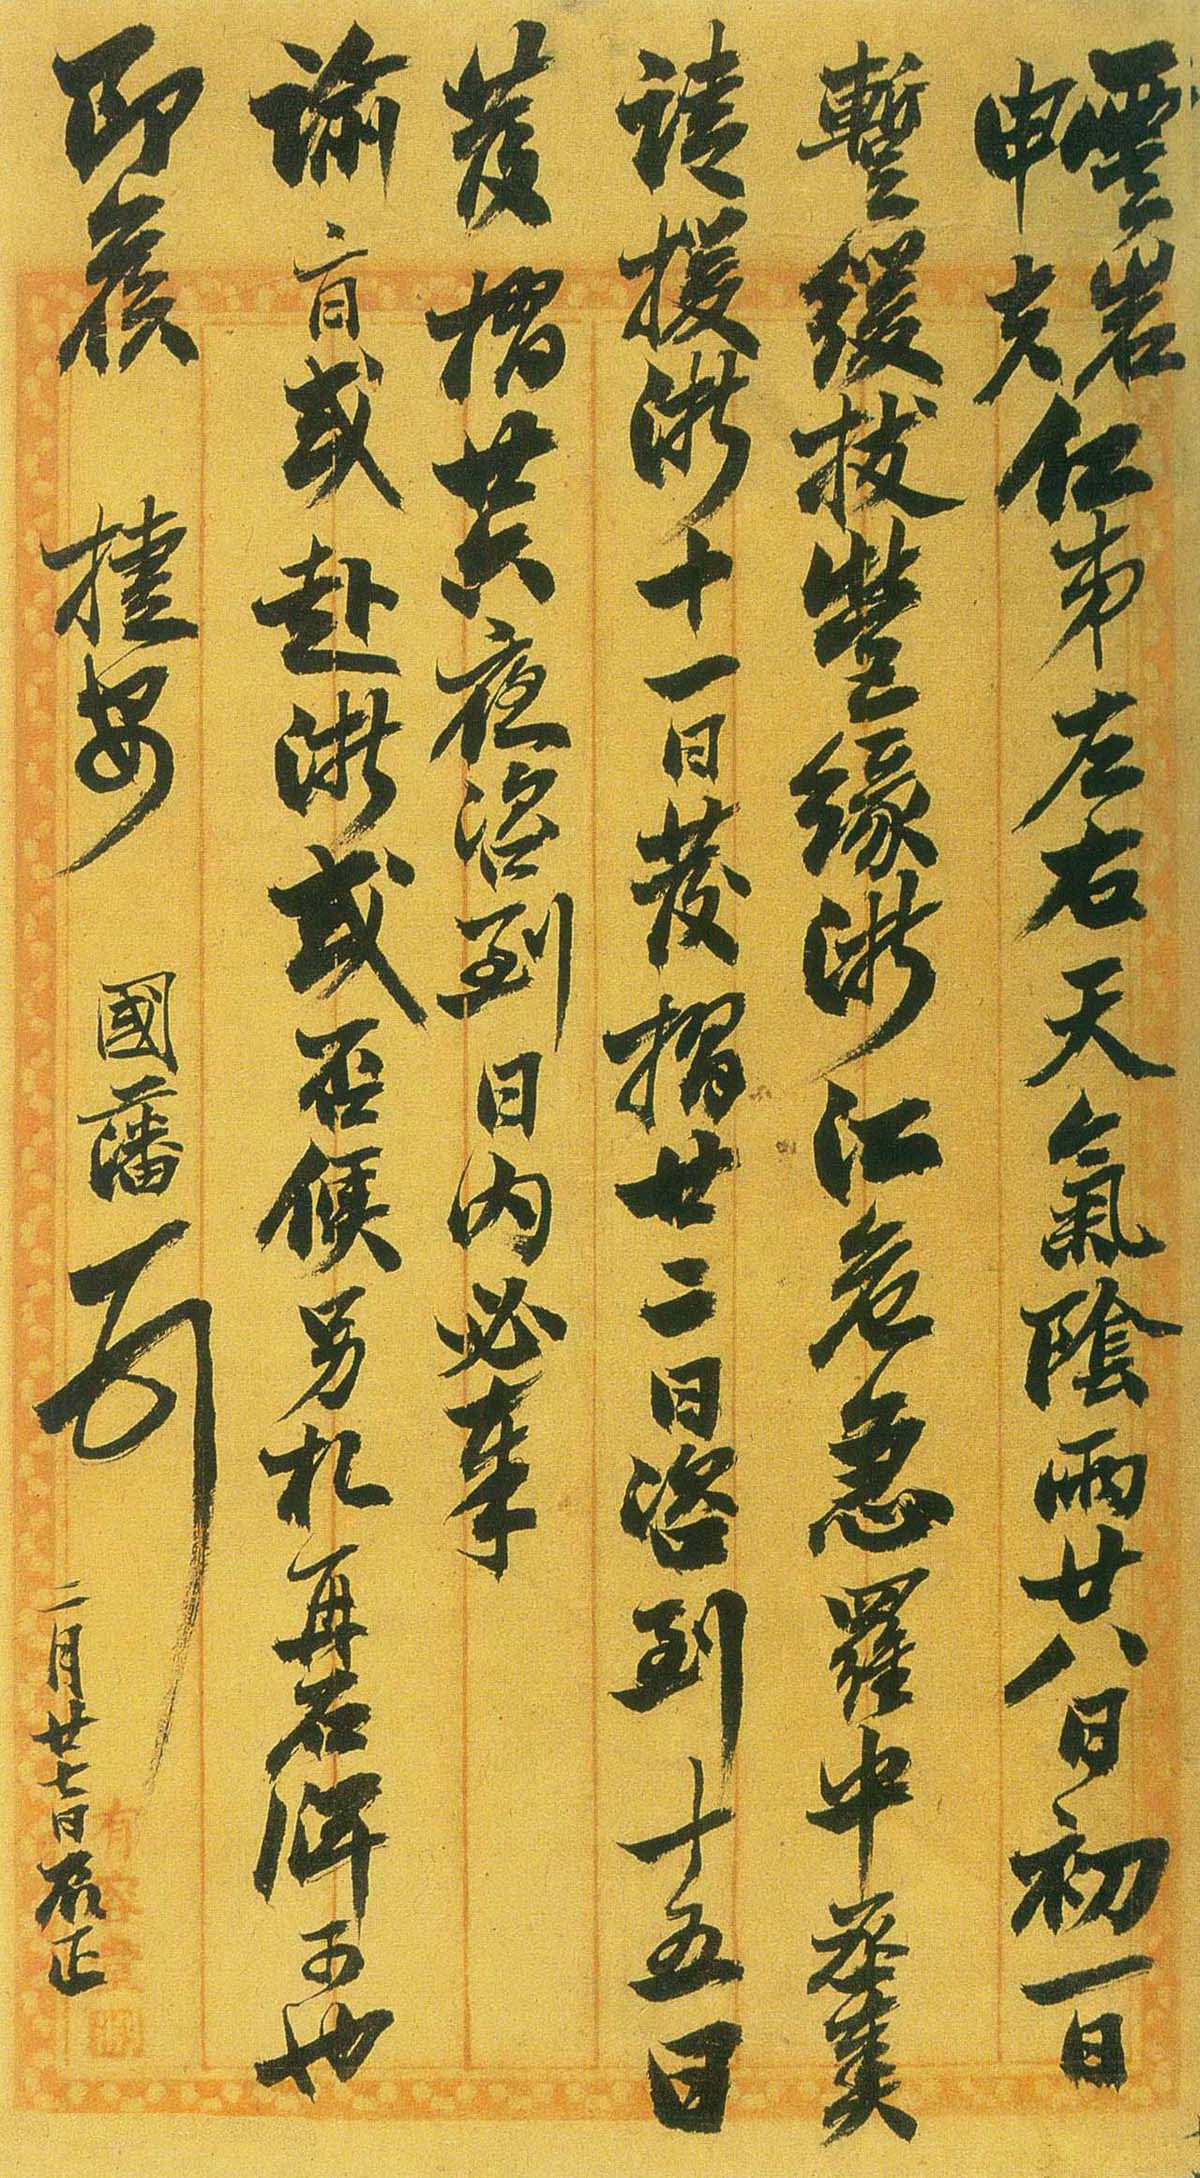 雲岩
申夫
仁弟左右天氣陰雨廿八日初一日
暫緩拔營緣浙江危急羅中丞奏
請援浙十一日發摺廿二日咨到十五日
發摺其夜咨到日內必奉
諭旨或赴浙或否候另札再可也
即候 捷安 國藩頓首
二月廿七日辰正
有容堂